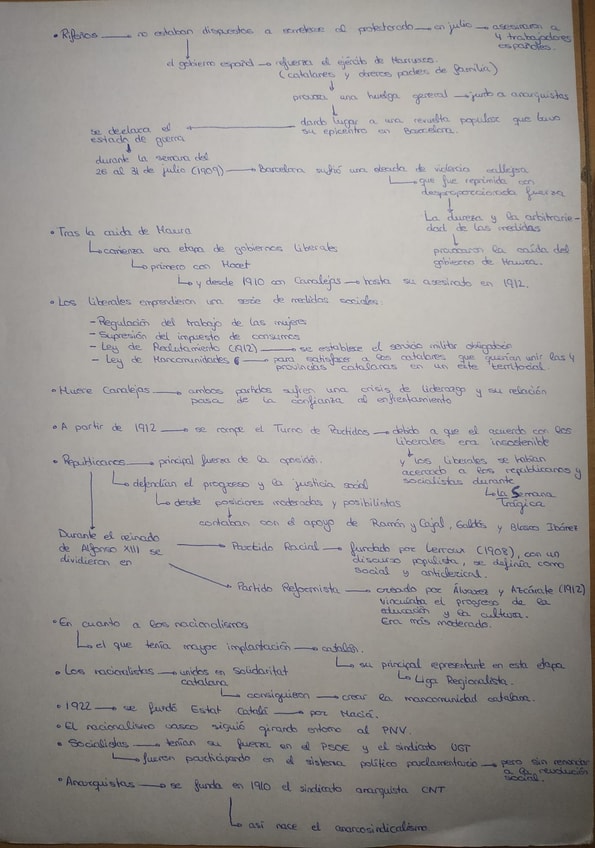 • Rifeños → no estaban dispuestos a someterse al protectorado → en julio → asesinaron a
4 trabajadores
españoles.
el gobierno español → refuerza el ejército de Marruecos.
(catalanes y obreros padres de familia)
provoca una huelga general → junto a anarquistas
dando lugar a una revuelta popular que tuvo
su epicentro en Barcelona.
se declara el
estado de guerra
durante la semana del
26 al 31 de julio (1909) → Barcelona sufrió una oleada de violencia callejera
que fue reprimida con
desproporcionada fuerza
La dureza y la arbitrarie-
dad de las medidas
provocaron la caída del
gobierno de Maura.
• Tras la caída de Maura
comienza una etapa de gobiernos liberales
primero con Moret
y desde 1910 con Canalejas → hasta su asesinato en 1912.
• Los liberales emprendieron una serie de medidas sociales:
- Regulación del trabajo de las mujeres
- Supresión del impuesto de consumos
- Ley de Reclutamiento (1912) → se establece el servicio militar obligatorio
- Ley de Mancomunidades → para satisfacer a los catalanes que querían unir las 4
provincias catalanas en un ente territorial.
• Muere Canalejas → ambos partidos sufren una crisis de liderazgo y su relación
pasa de la confianza al enfrentamiento
• A partir de 1912 → se rompe el Turno de Partidos → debido a que el acuerdo con los
liberales era insostenible
y los liberales se habían
acercado a los republicanos y
socialistas durante
la Semana
Trágica
• Republicanos → principal fuerza de la oposición.
defendían el progreso y la justicia social
desde posiciones moderadas y posibilistas
contaban con el apoyo de Ramón y Cajal, Galdós y Blasco Ibánez
Durante el reinado
de Alfonso XIII se
dividieron en
Partido Racial → fundado por Lerroux (1908), con un
discurso populista, se definía como
social y anticlerical.
Partido Reformista → creado por Álvarez y Azcárate (1912)
vinculaba el progreso de la
educación y la cultura.
Era más moderado.
• En cuanto a los nacionalismos
el que tenía mayor implantación → catalán.
su principal representante en esta etapa
Liga Regionalista.
• Los nacionalistas → unidos en Solidaritat
catalana
consiguieron → crear la mancomunidad catalana.
• 1922 → se fundó Estat Catalá → por Maciá.
• El nacionalismo vasco siguió girando entorno al PNV.
• Socialistas → tenían su fuerza en el PSOE y el sindicato UGT
fueron participando en el sistema político parlamentario → pero sin renunciar
a la revolución
social.
• Anarquistas → se funda en 1910 el sindicato anarquista CNT
así nace el anarcosindicalismo.